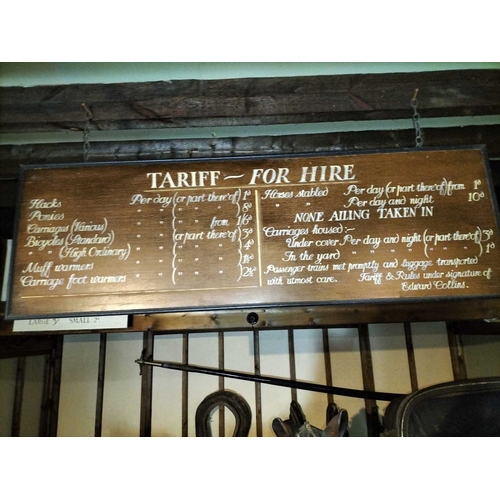 TARIFF ~ FOR HIRE
Hacks Per day (or part thereof) 1s
Ponies " " " " 8d
Carriages (Various) " " " from 1/6
Bicycles (Standard) " (or part thereof) 3d
" (High Ordinary) " " " 4d
Muff warmers " " " 1½d
Carriage foot warmers " " " 2½d
Horses stabled Per day (or part thereof) from 1s
Per day and night 10d
NONE AILING TAKEN IN
Carriages housed :-
Under cover. Per day and night (or part thereof) 3d
In the yard " " " " " 1d
Passenger trains met promptly and luggage transported
with utmost care. Tariff & Rules under signature of
Edward Collins.
LARGE SMALL